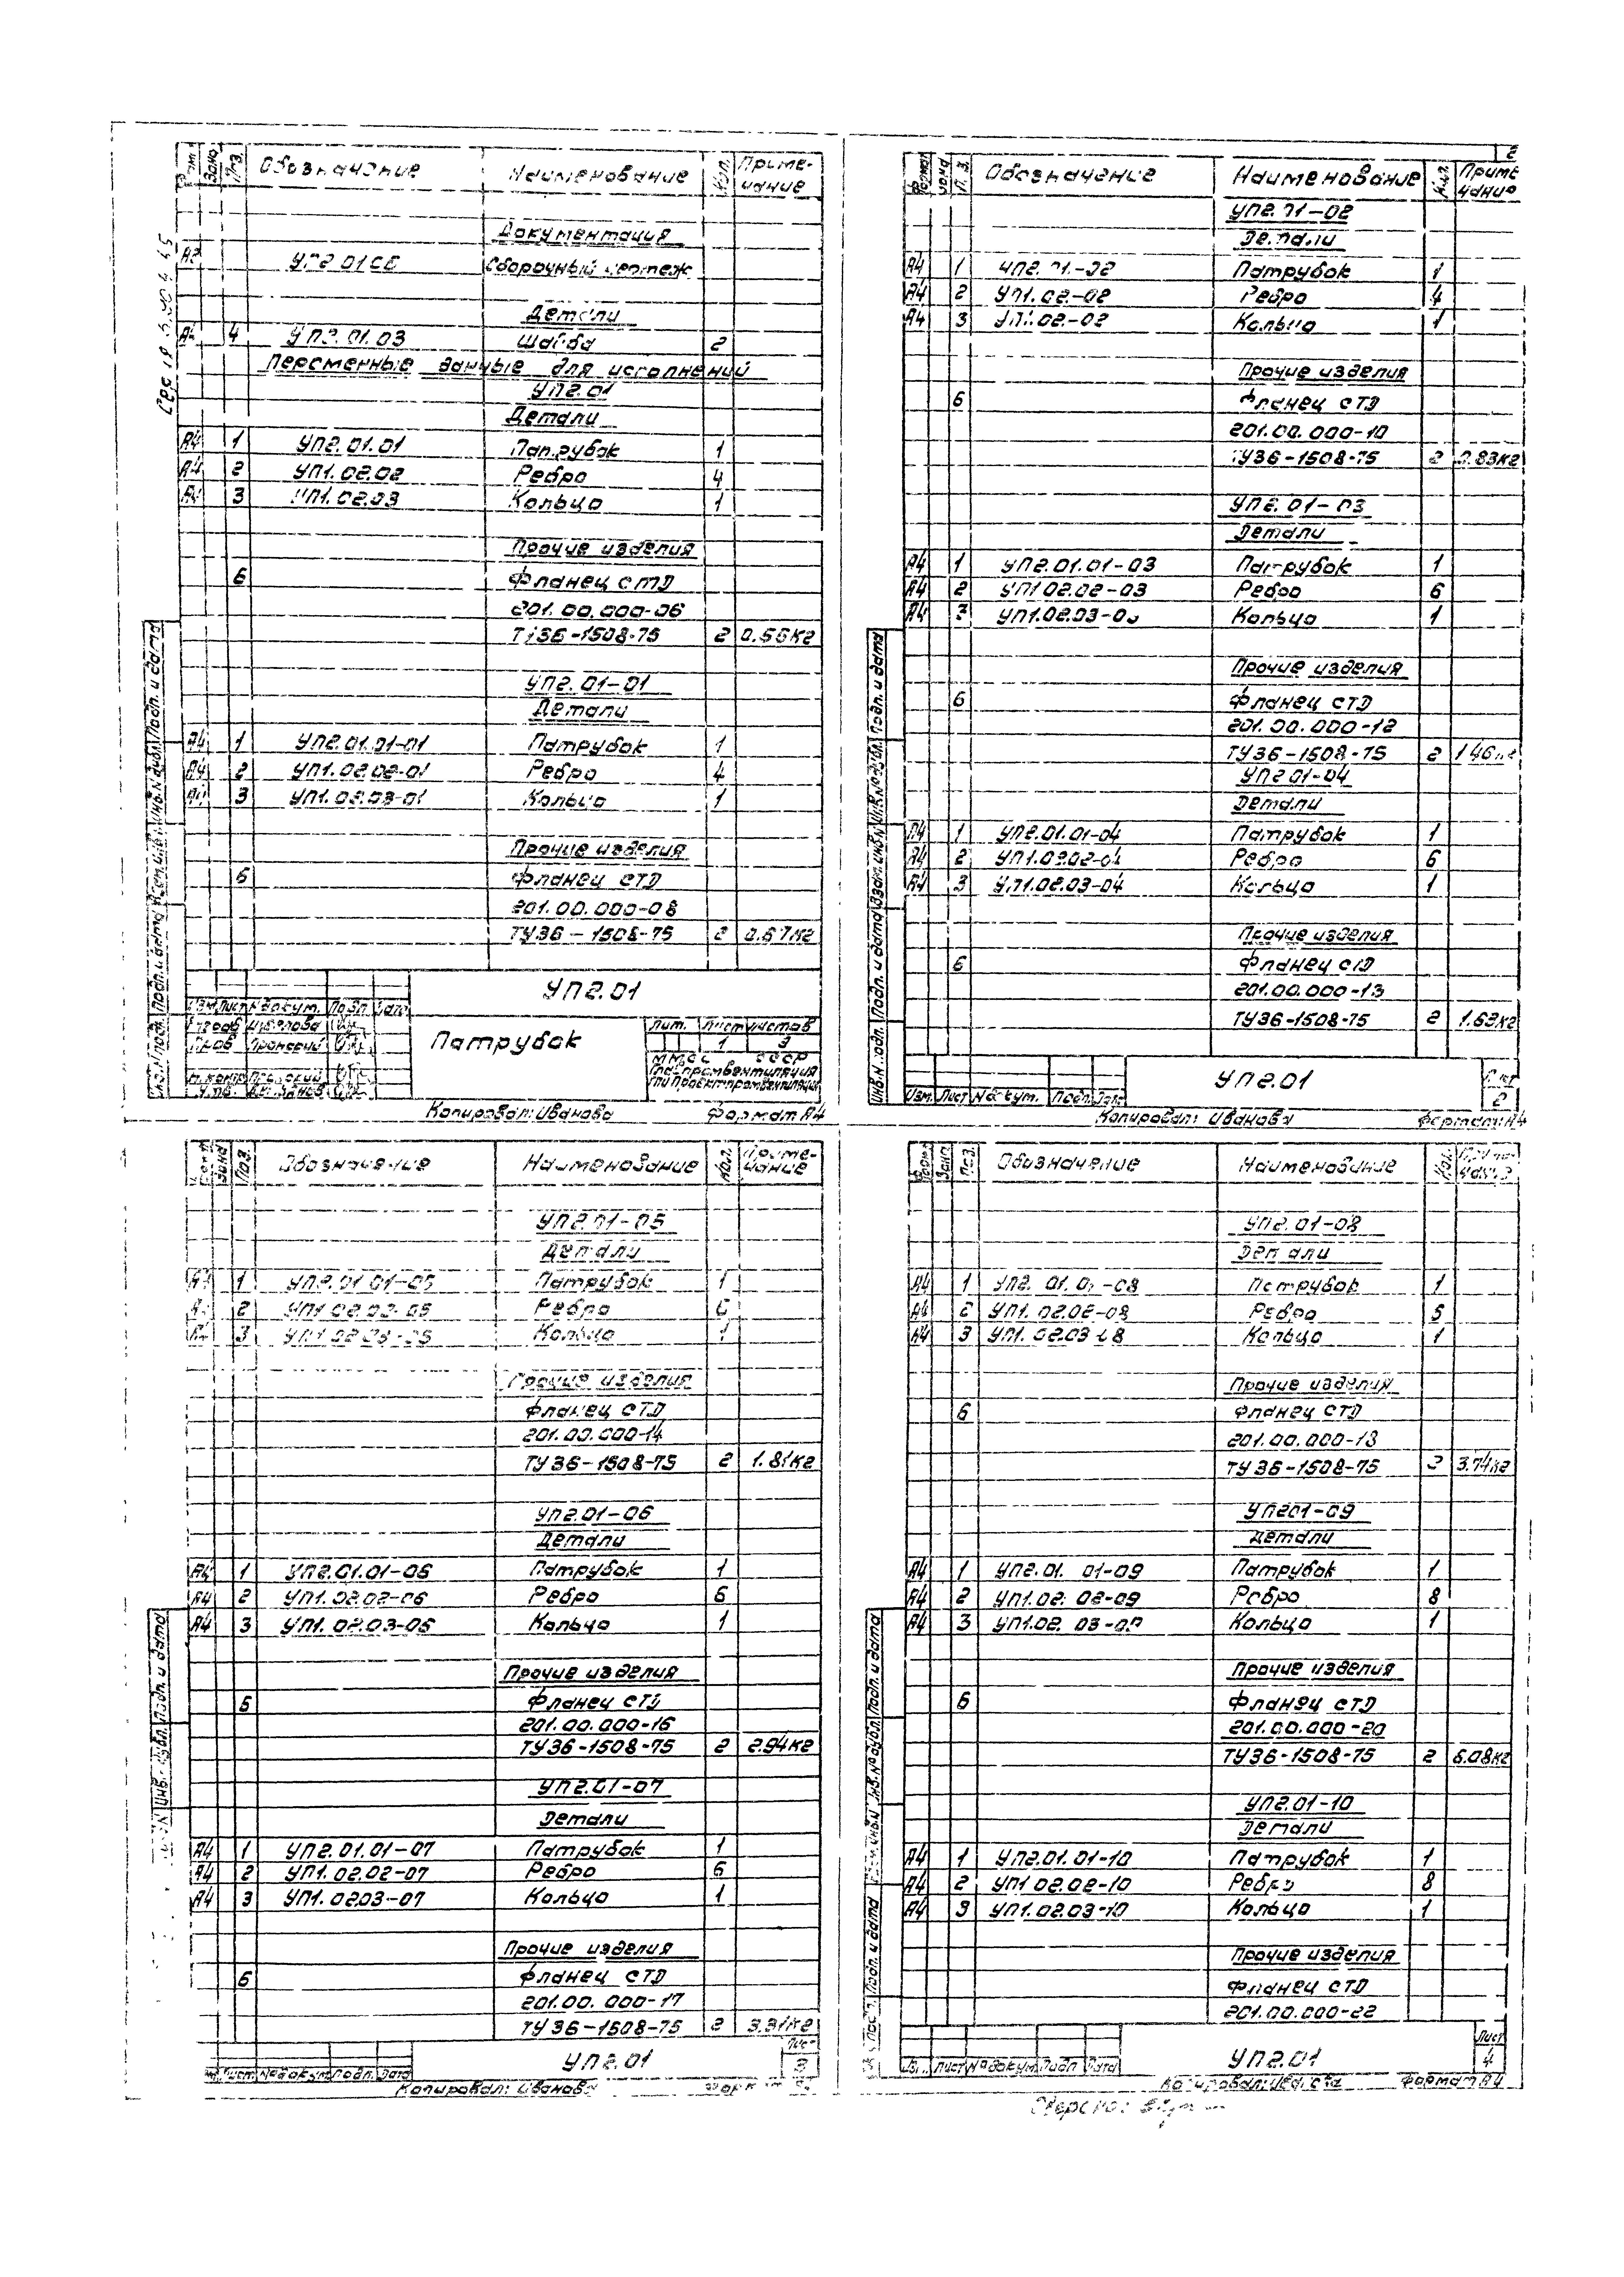 Зона Поз. Обозначение Наименование Кол. Приме-
чание
Документация
Сборочный чертеж
Детали
4 Шайба 2
Переменные данные для исполнений
УП2.01
Детали
А4 1 УП2.01.01 Патрубок 1
А4 2 УП1.02.02 Ребро 4
А4 3 УП1.02.03 Кольцо 1
Прочие изделия
6 Фланец СТД
201.00.000-06
ТУ36-1508-75 2 0.56кг
УП2.01-01
Детали
А4 1 УП2.01.01-01 Патрубок 1
А4 2 УП1.02.02-01 Ребро 4
А4 3 УП1.02.03-01 Кольцо 1
Прочие изделия
6 Фланец СТД
201.00.000-08
ТУ36-1508-75 2 0.67кг
УП2.01
Изм. Лист № докум. Подп. Дата
Патрубок
Лит. Лист Листов
1 9
СССР
Главпромвентиляция
ГПИ Проектпромвентиляция
Копировал: Иванова Формат А4
2
Формат Зона Обозначение Наименование Кол. Приме
чание
УП2.01-02
Детали
А4 1 Патрубок 1
А4 2 УП1.02.-02 Ребро 4
А4 3 Кольцо 1
Прочие изделия
6 Фланец СТД
201.00.000-10
ТУ36-1508-75 2 0.83кг
УП2.01-03
Детали
А4 1 УП2.01.01-03 Патрубок 1
А4 2 УП1 02.02-03 Ребро 6
А4 3 Кольцо 1
Прочие изделия
6 Фланец СТД
201.00.000-12
ТУ36-1508-75 2
УП2 01-04
Детали
А4 1 УП2.01.01-04 Патрубок 1
А4 2 УП1.0202-04 Ребро 6
А4 3 УП1.02.03-04 Кольцо 1
Прочие изделия
6 Фланец СТД
201.00.000-13
ТУ36-1508-75 2 1.63кг
УП2.01
Лист
2
Изм. Лист № докум. Подп. Дата
Копировал: Иванова Формат А4
Поз. Обозначение Наименование Кол. Приме-
чание
УП2.01-05
Детали
1 УП2.01 01-05 Патрубок 1
2 Ребро
А4 3 Кольцо 1
Прочие изделия
Фланец СТД
201.00.000-14
ТУ36-1508-75 2 1.81кг
УП2.01-06
Детали
А4 1 УП2.01.01-06 Патрубок 1
А4 2 УП1.02.02-06 Ребро 6
А4 3 УП1.02.03-06 Кольцо 1
Прочие изделия
6 Фланец СТД
201.00.000-16
ТУ36-1508-75 2 2.94кг
УП2.01-07
Детали
А4 1 УП2.01.01-07 Патрубок 1
А4 2 УП1.02.02-07 Ребро 6
А4 3 УП1.0203-07 Кольцо 1
Прочие изделия
6 Фланец СТД
201.00.000-17
ТУ36-1508-75 2 3.31кг
УП2.01
Лист
3
Лист № докум. Подп. Дата
Копировал: Иванова
Поз. Обозначение Наименование Кол.
УП2.01-08
Детали
А4 1 Патрубок 1
А4 2 УП1.02.02-08 Ребро
А4 3 Кольцо 1
Прочие изделия
6 Фланец СТД
201.00.000-18
ТУ36-1508-75 2 3.74кг
УП201-09
Детали
А4 1 УП2.01. 01-09 Патрубок 1
А4 2 УП1.02. 02-09 Ребро 8
А4 3 УП1.02. 03-09 Кольцо 1
Прочие изделия
6 Фланец СТД
201.00.000-20
ТУ36-1508-75 2 6.08кг
УП2.01-10
Детали
А4 1 УП2.01.01-10 Патрубок 1
А4 2 УП1 02.02-10 Ребро 8
А4 3 УП1.02.03-10 Кольцо 1
Прочие изделия
Фланец СТД
201.00.000-22
УП2.01
Лист
4
Лист № докум. Подп. Дата
Формат А4